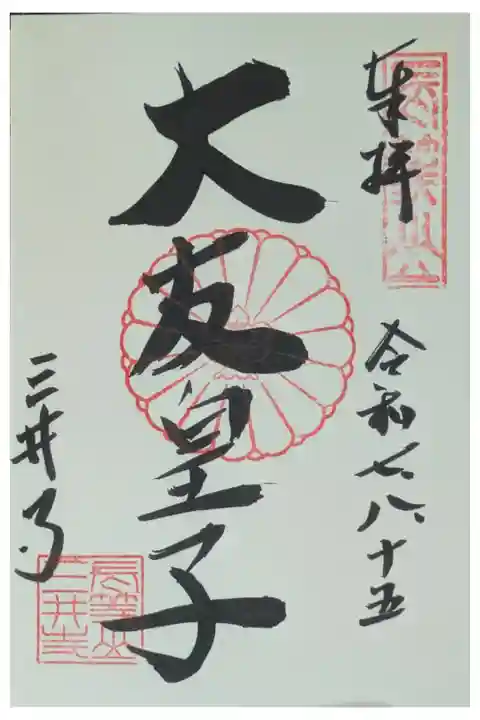 奉拝
令和七八十五
大友皇子
三井寺
長等山
三井寺